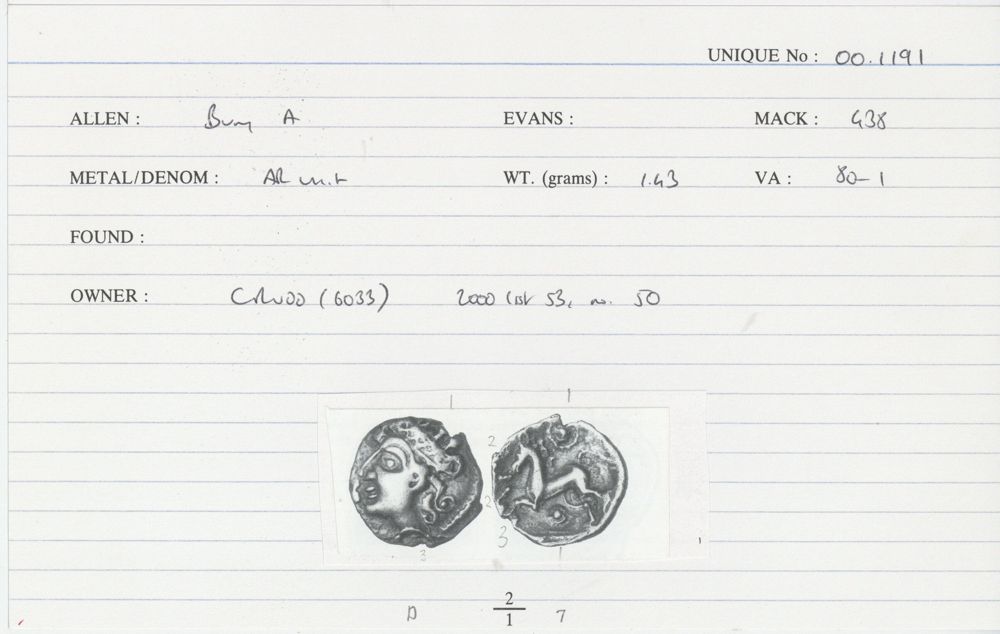 UNIQUE No : 00.1191
ALLEN : Bury A EVANS : MACK : 438
METAL/DENOM : AR unit WT. (grams) : 1.43 VA : 80-1
FOUND :
OWNER : CRUDD (6033) 2000 list 53, no. 50
1 1
2
2
3
3 1
D 2/1 7